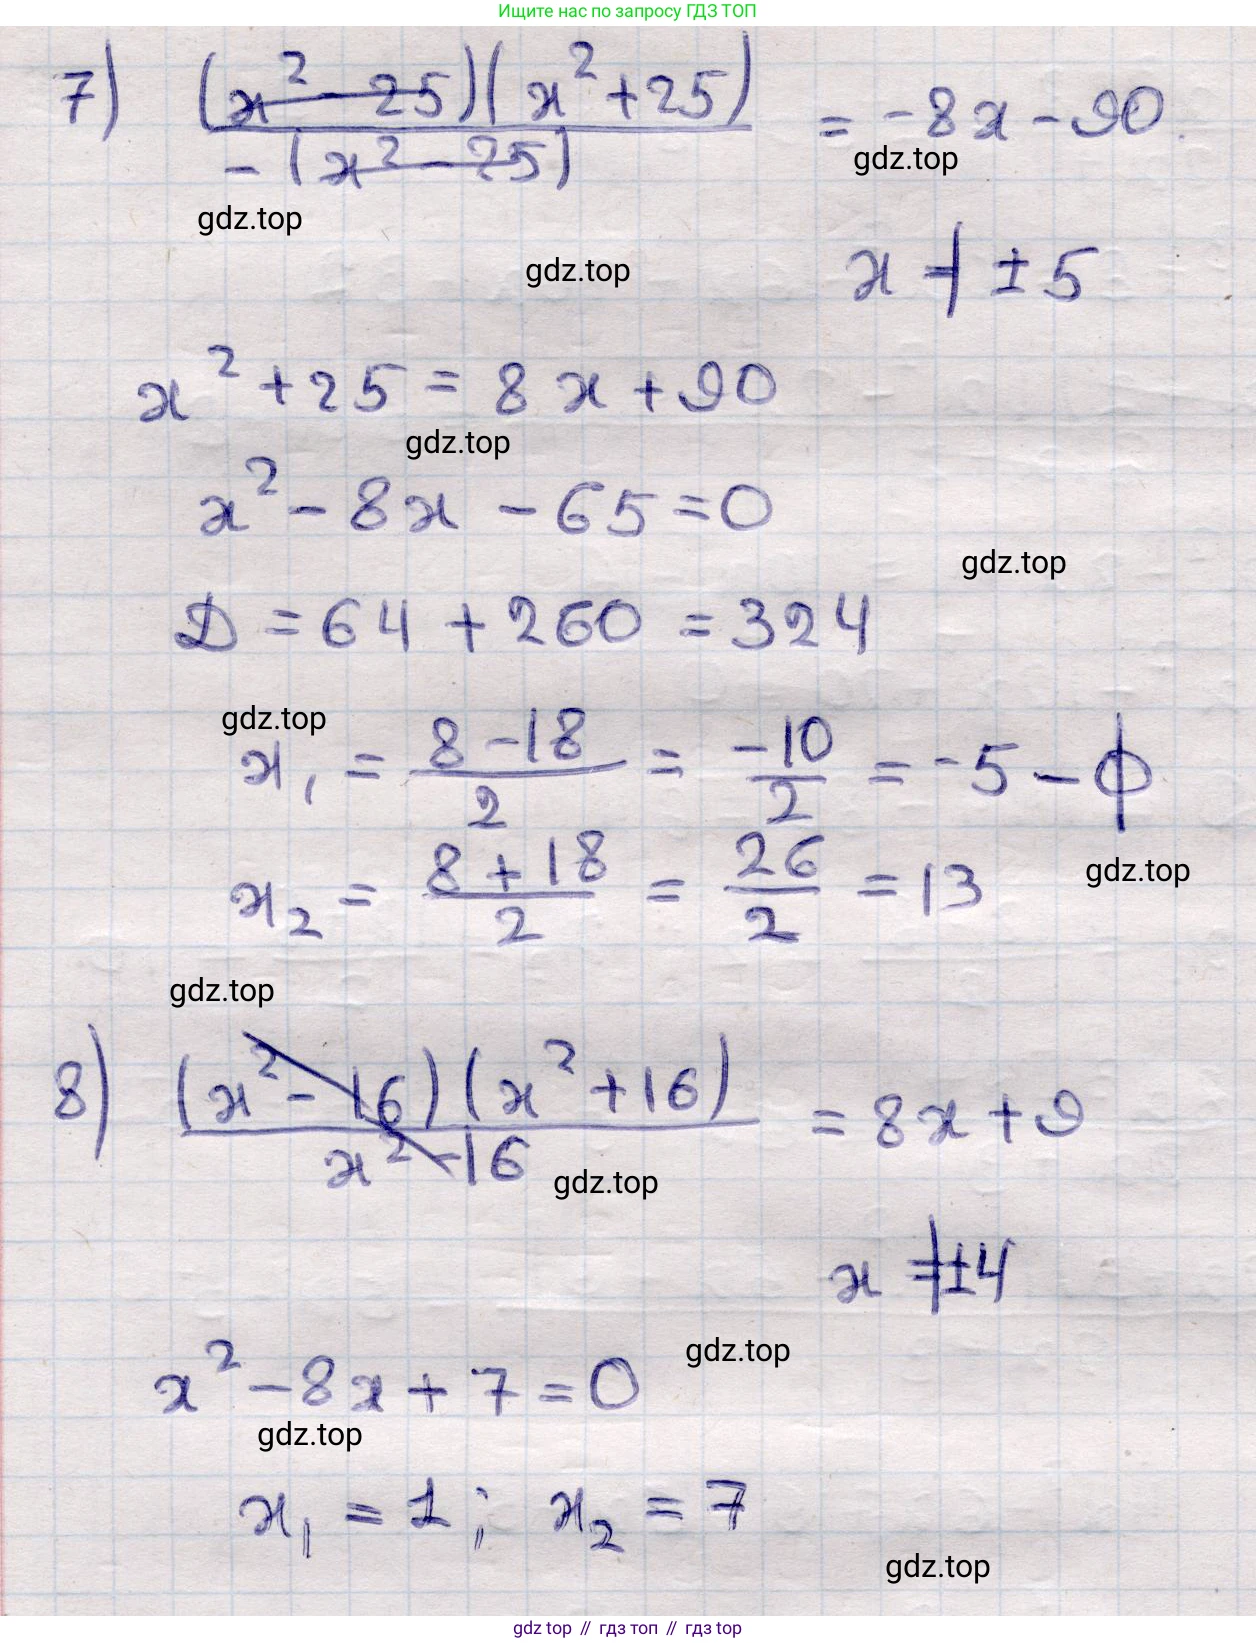 Ищите нас по запросу ГДЗ ТОП
7) (x² - 25)(x² + 25) / -(x² - 25) = -8x - 90
gdz.top
gdz.top
gdz.top
x ≠ ±5
x² + 25 = 8x + 90
gdz.top
x² - 8x - 65 = 0
gdz.top
D = 64 + 260 = 324
gdz.top
x₁ = (8 - 18)/2 = -10/2 = -5 - ф
gdz.top
x₂ = (8 + 18)/2 = 26/2 = 13
gdz.top
8) (x² - 16)(x² + 16) / x² - 16 = 8x + 9
gdz.top
x ≠ ±4
gdz.top
x² - 8x + 7 = 0
gdz.top
x₁ = 1; x₂ = 7
gdz.top
gdz top // гдз топ // гдз top